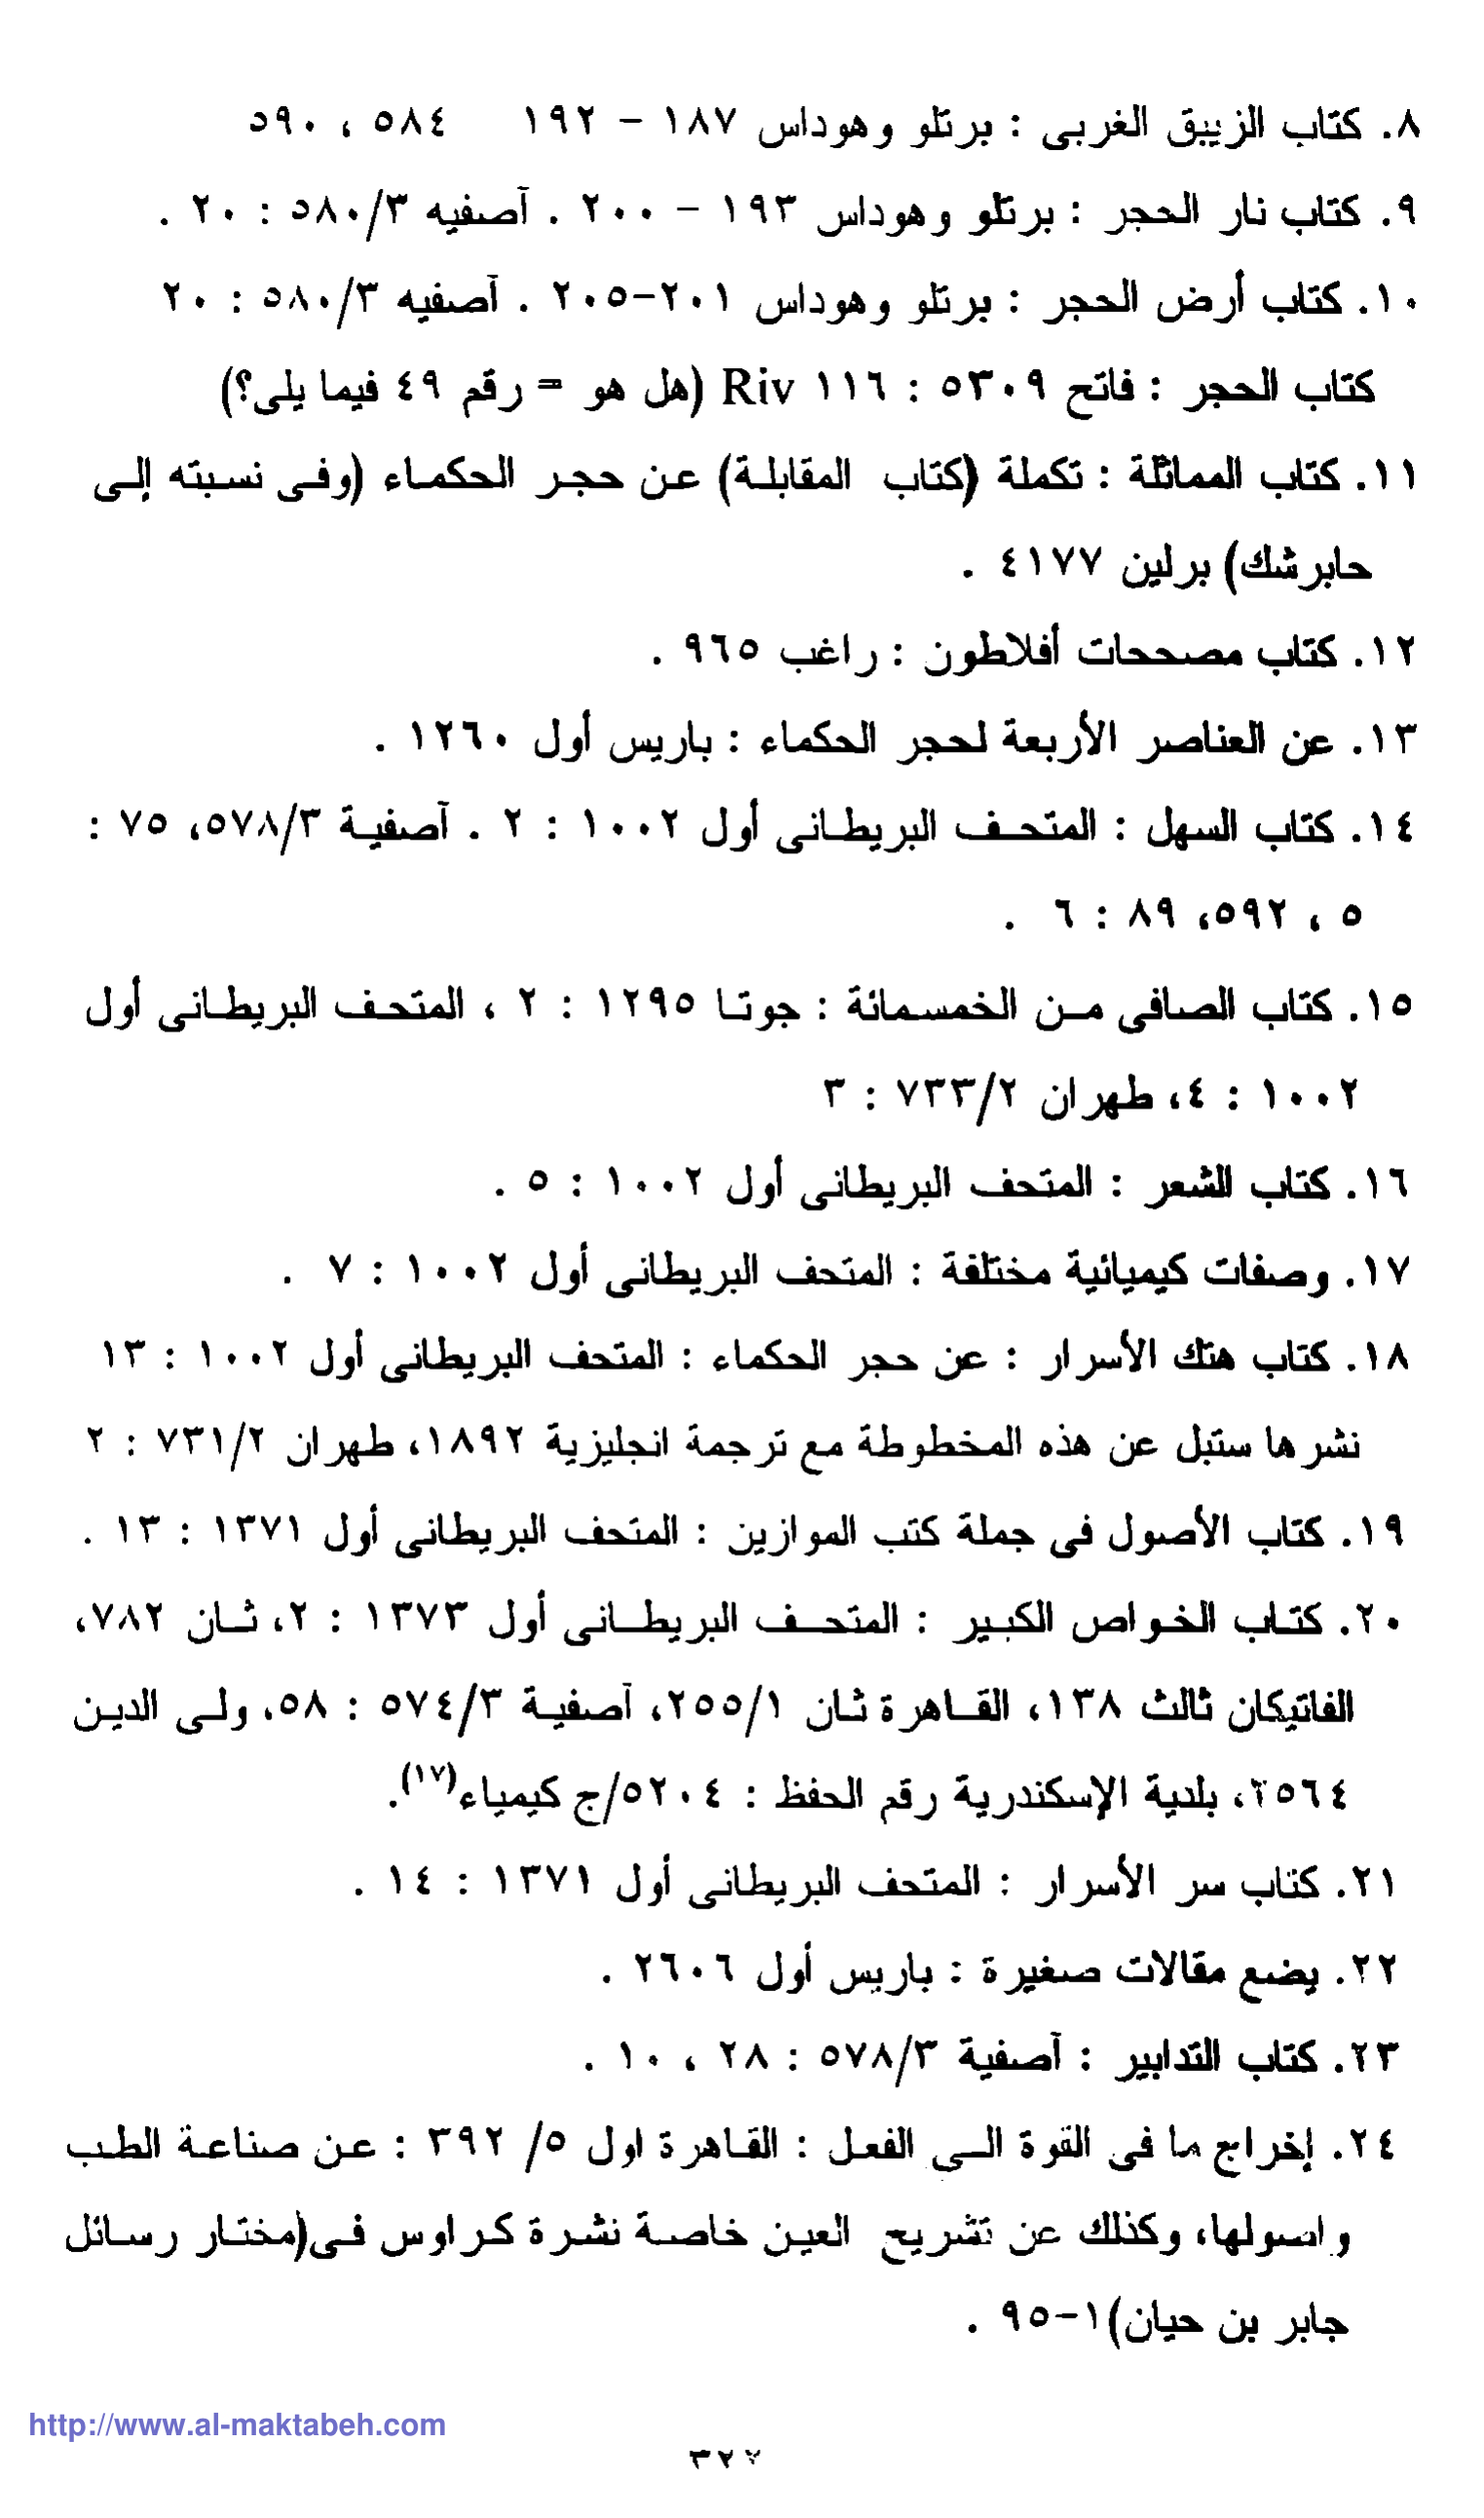 ٨. كتاب الزيبق الغربى : برتلو وهوداس ١٨٧ – ١٩٢ ٥٨٤ ، ٥٩٠
٩. كتاب نار الحجر : برتلو وهوداس ١٩٣ – ٢٠٠ . آصفيه ٥٨٠/٣ : ٢٠ .
١٠. كتاب أرض الحجر : برتلو وهوداس ٢٠١–٢٠٥ . آصفيه ٥٨٠/٣ : ٢٠
كتاب الحجر : فاتح ٥٣٠٩ : ١١٦ Riv (هل هو = رقم ٤٩ فيما يلى؟)
١١. كتاب المماثلة : تكملة (كتاب المقابلة) عن حجر الحكماء (وفى نسبته إلى
حابرشك) برلين ٤١٧٧ .
١٢. كتاب مصححات أفلاطون : راغب ٩٦٥ .
١٣. عن العناصر الأربعة لحجر الحكماء : باريس أول ١٢٦٠ .
١٤. كتاب السهل : المتحف البريطانى أول ١٠٠٢ : ٢ . آصفية ٥٧٨/٣، ٧٥ :
٥ ، ٥٩٢، ٨٩ : ٦ .
١٥. كتاب الصافى من الخمسمائة : جوتا ١٢٩٥ : ٢ ، المتحف البريطانى أول
١٠٠٢ : ٤، طهران ٧٣٣/٢ : ٣
١٦. كتاب الشعر : المتحف البريطانى أول ١٠٠٢ : ٥ .
١٧. وصفات كيميائية مختلفة : المتحف البريطانى أول ١٠٠٢ : ٧ .
١٨. كتاب هتك الأسرار : عن حجر الحكماء : المتحف البريطانى أول ١٠٠٢ : ١٣
نشرها ستبل عن هذه المخطوطة مع ترجمة انجليزية ١٨٩٢، طهران ٧٣١/٢ : ٢
١٩. كتاب الأصول فى جملة كتب الموازين : المتحف البريطانى أول ١٣٧١ : ١٣ .
٢٠. كتاب الخواص الكبير : المتحف البريطانى أول ١٣٧٣ : ٢، ثان ٧٨٢،
الفاتيكان ثالث ١٣٨، القاهرة ثان ٢٥٥/١، آصفية ٥٧٤/٣ : ٥٨، ولى الدين
٢٥٦٤، بلدية الإسكندرية رقم الحفظ : ٥٢٠٤/ج كيمياء(١٧).
٢١. كتاب سر الأسرار : المتحف البريطانى أول ١٣٧١ : ١٤ .
٢٢. بضع مقالات صغيرة : باريس أول ٢٦٠٦ .
٢٣. كتاب التدابير : آصفية ٥٧٨/٣ : ٢٨ ، ١٠ .
٢٤. إخراج ما فى القوة الى الفعل : القاهرة اول ٥/ ٣٩٢ : عن صناعة الطب
واصولها، وكذلك عن تشريح العين خاصة نشرة كراوس فى(مختار رسائل
جابر بن حيان)١–٩٥ .
http://www.al-maktabeh.com
٣٢٧